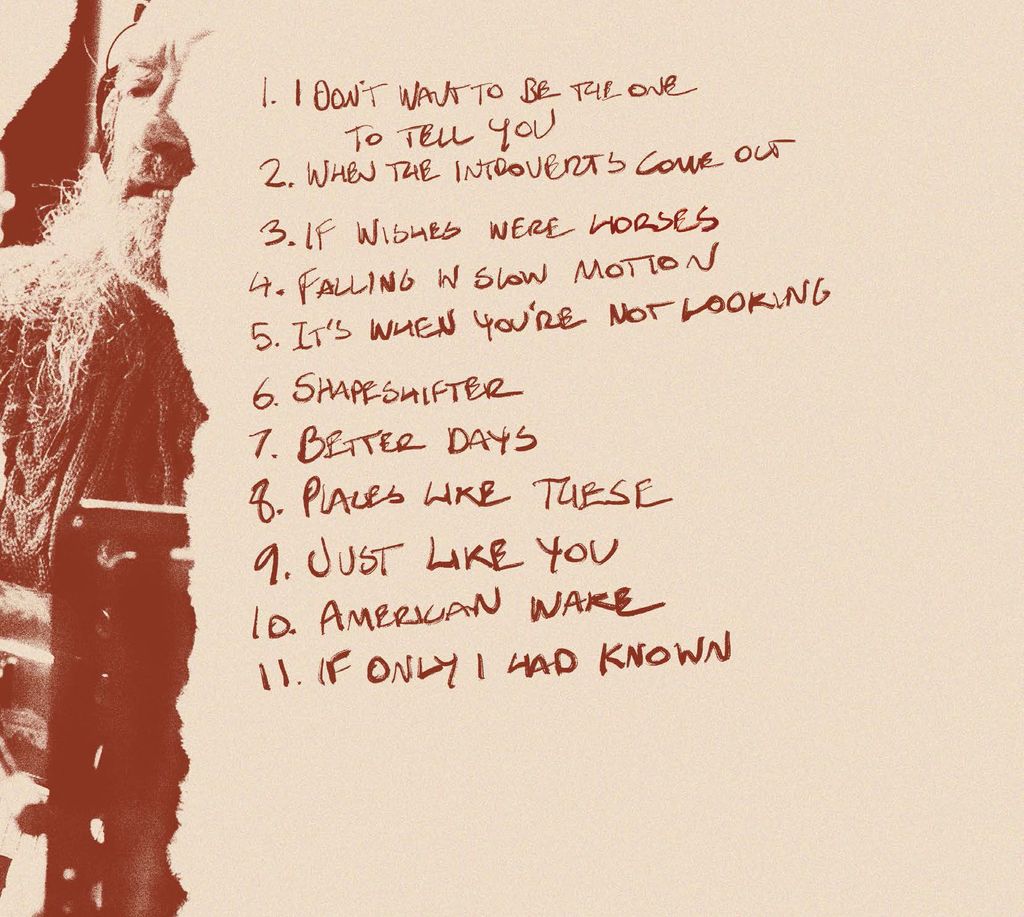 1. I DON'T WANT TO BE THE ONE
TO TELL YOU
2. WHEN THE INTROVERTS COME OUT
3. IF WISHES WERE HORSES
4. FALLING IN SLOW MOTION
5. IT'S WHEN YOU'RE NOT LOOKING
6. SHAPESHIFTER
7. BETTER DAYS
8. PLACES LIKE THESE
9. JUST LIKE YOU
10. AMERICAN WAKE
11. IF ONLY I HAD KNOWN